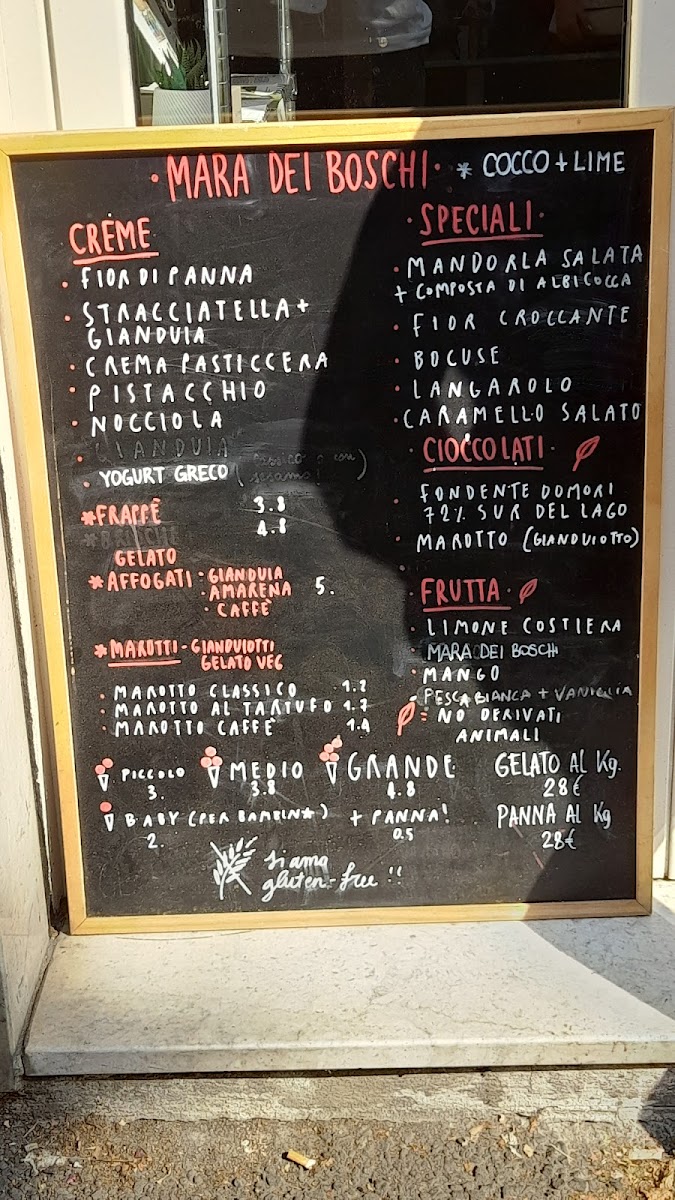 · MARA DEI BOSCHI ·
* COCCO + LIME
CRÈME
· FIOR DI PANNA
· STRACCIATELLA +
GIANDUIA
· CREMA PASTICCERA
· PISTACCHIO
· NOCCIOLA
· GIANDUIA
· YOGURT GRECO (
*FRAPPÈ 3.8
*BRIOCHE 4.8
GELATO
*AFFOGATI · GIANDUIA
· AMARENA 5.
· CAFFÈ
*MAROTTI - GIANDUIOTTI
GELATO VEG
· MAROTTO CLASSICO · 1.2
· MAROTTO AL TARTUFO · 1.7
· MAROTTO CAFFÈ 1.4
· SPECIALI ·
· MANDORLA SALATA
+ COMPOSTA DI ALBICOCCA
· FIOR CROCCANTE
· BOCUSE
· LANGAROLO
· CARAMELLO SALATO
· CIOCCOLATI ·
· FONDENTE DOMORI
72% SUR DEL LAGO
· MAROTTO (GIANDUIOTTO)
· FRUTTA ·
· LIMONE COSTIERA
· MARA DEI BOSCHI
· MANGO
· PESCA BIANCA + VANIGLIA
= NO DERIVATI
ANIMALI
PICCOLO MEDIO GRANDE
3. 3.8 4.8
BABY (PER BAMBIN*) + PANNA!
2. 0.5
GELATO AL Kg.
28€
PANNA AL Kg
28€
siamo
gluten-free !!